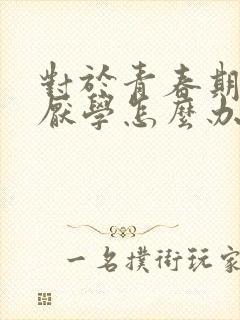 對於青春期
厭學怎麼办
一名撲術玩家